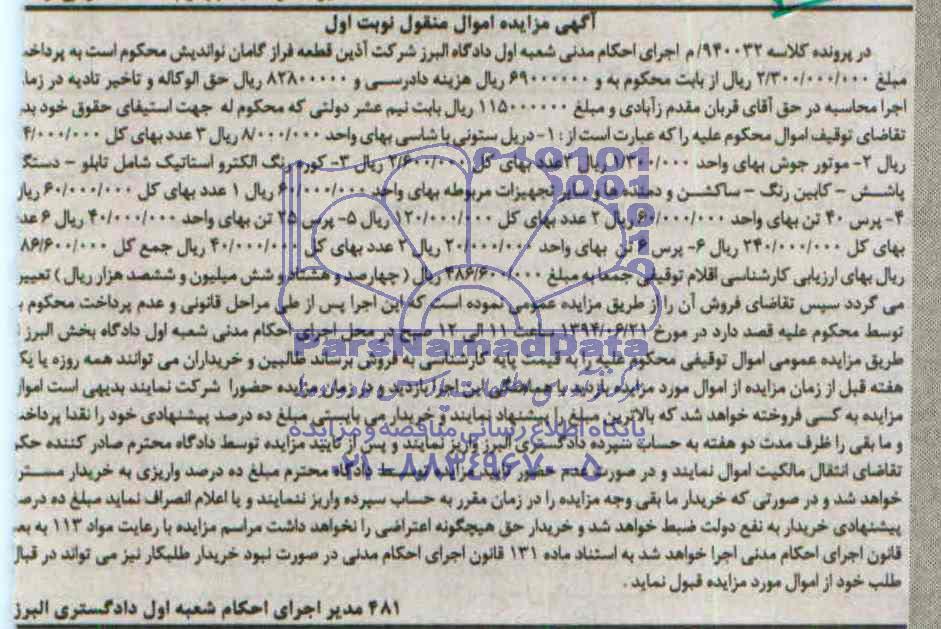 آگهی مزایده اموال منقول نوبت اول
در پرونده کلاسه ۹۴۰۰۳۲/ م اجرای احکام مدنی شعبه اول دادگاه البرز شرکت آذین قطعه فراز گامان نواندیش محکوم است به پرداخت
مبلغ ۲/۳۰۰/۰۰۰/۰۰۰ ریال از بابت محکوم به و ۶۹۰۰۰۰۰۰ ریال هزینه دادرسی و ۸۲۸۰۰۰۰۰ ریال حق الوکاله و تاخیر تادیه در زمان
اجرا محاسبه در حق آقای قربان مقدم زآبادی و مبلغ ۱۱۵۰۰۰۰۰۰ ریال بابت نیم عشر دولتی که محکوم له جهت استیفای حقوق خود
تقاضای توقیف اموال محکوم علیه را که عبارت است از : ۱- دریل ستونی با شاسی بهای واحد ۸/۰۰۰/۰۰۰ ریال ۳ عدد بهای کل
ریال ۲- موتور جوش بهای واحد ۱/۳۰۰/۰۰۰ ریال ۲ عدد بهای کل ۲/۶۰۰/۰۰۰ ریال ۳- کوره رنگ الکترو استاتیک شامل تابلو -
پاشش - کابین رنگ - ساکشن و دمنده ها و سایر تجهیزات مربوطه بهای واحد ۶۰/۰۰۰/۰۰۰ ریال ۱ عدد بهای کل ۶۰/۰۰۰/۰۰۰ ریال
۴- پرس ۴۰ تن بهای واحد ۶۰/۰۰۰/۰۰۰ ریال ۲ عدد بهای کل ۱۲۰/۰۰۰/۰۰۰ ریال ۵- پرس ۲۵ تن بهای واحد ۴۰/۰۰۰/۰۰۰ ریال ۶ عدد
بهای کل ۲۴۰/۰۰۰/۰۰۰ ریال ۶- پرس ۶ تن بهای واحد ۲۰/۰۰۰/۰۰۰ ریال ۲ عدد بهای کل ۴۰/۰۰۰/۰۰۰ ریال جمع کل
ریال بهای ارزیابی کارشناسی اقلام توقیفی جمعا به مبلغ ۴۸۶/۶۰۰/۰۰۰ ریال ( چهارصد و هشتاد و شش میلیون و ششصد هزار ریال ) تعیین
می گردد سپس تقاضای فروش آن را از طریق مزایده عمومی نموده است که این اجرا پس از طی مراحل قانونی و عدم پرداخت محکوم به
توسط محکوم علیه قصد دارد در مورخ ۱۳۹۴/۰۶/۲۱ ساعت ۱۱ الی ۱۲ صبح در محل اجرای احکام مدنی شعبه اول دادگاه بخش البرز از
طریق مزایده عمومی اموال توقیفی محکوم علیه را به قیمت پایه کارشناسی به فروش برساند طالبین و خریداران می توانند همه روزه یا یک
هفته قبل از زمان مزایده از اموال مورد مزایده بازدید با هماهنگی این اجرا بازدید و در زمان مزایده حضورا شرکت نمایند بدیهی است اموال
مزایده به کسی فروخته خواهد شد که بالاترین مبلغ را پیشنهاد نمایند و خریدار می بایستی مبلغ ده درصد پیشنهادی خود را نقدا پرداخت
و ما بقی را ظرف مدت دو هفته به حساب سپرده دادگستری البرز واریز نمایند و پس از تایید مزایده توسط دادگاه محترم صادر کننده حکم
تقاضای انتقال مالکیت اموال نمایند و در صورت عدم حضور تایید مزایده توسط دادگاه محترم مبلغ ده درصد واریزی به خریدار مسترد
خواهد شد و در صورتی که خریدار ما بقی وجه مزایده را در زمان مقرر به حساب سپرده واریز ننمایند و یا اعلام انصراف نماید مبلغ ده درصد
پیشنهادی خریدار به نفع دولت ضبط خواهد شد و خریدار حق هیچگونه اعتراضی را نخواهد داشت مراسم مزایده با رعایت مواد ۱۱۳ به بعد
قانون اجرای احکام مدنی اجرا خواهد شد به استناد ماده ۱۳۱ قانون اجرای احکام مدنی در صورت نبود خریدار طلبکار نیز می تواند در قبال
طلب خود از اموال مورد مزایده قبول نماید .
۴۸۱ مدیر اجرای احکام شعبه اول دادگستری البرز
ParsNamadData
پایگاه اطلاع رسانی مناقصه و مزایده
۰۲۱-۸۸۳۴۹۶۷۰-۵